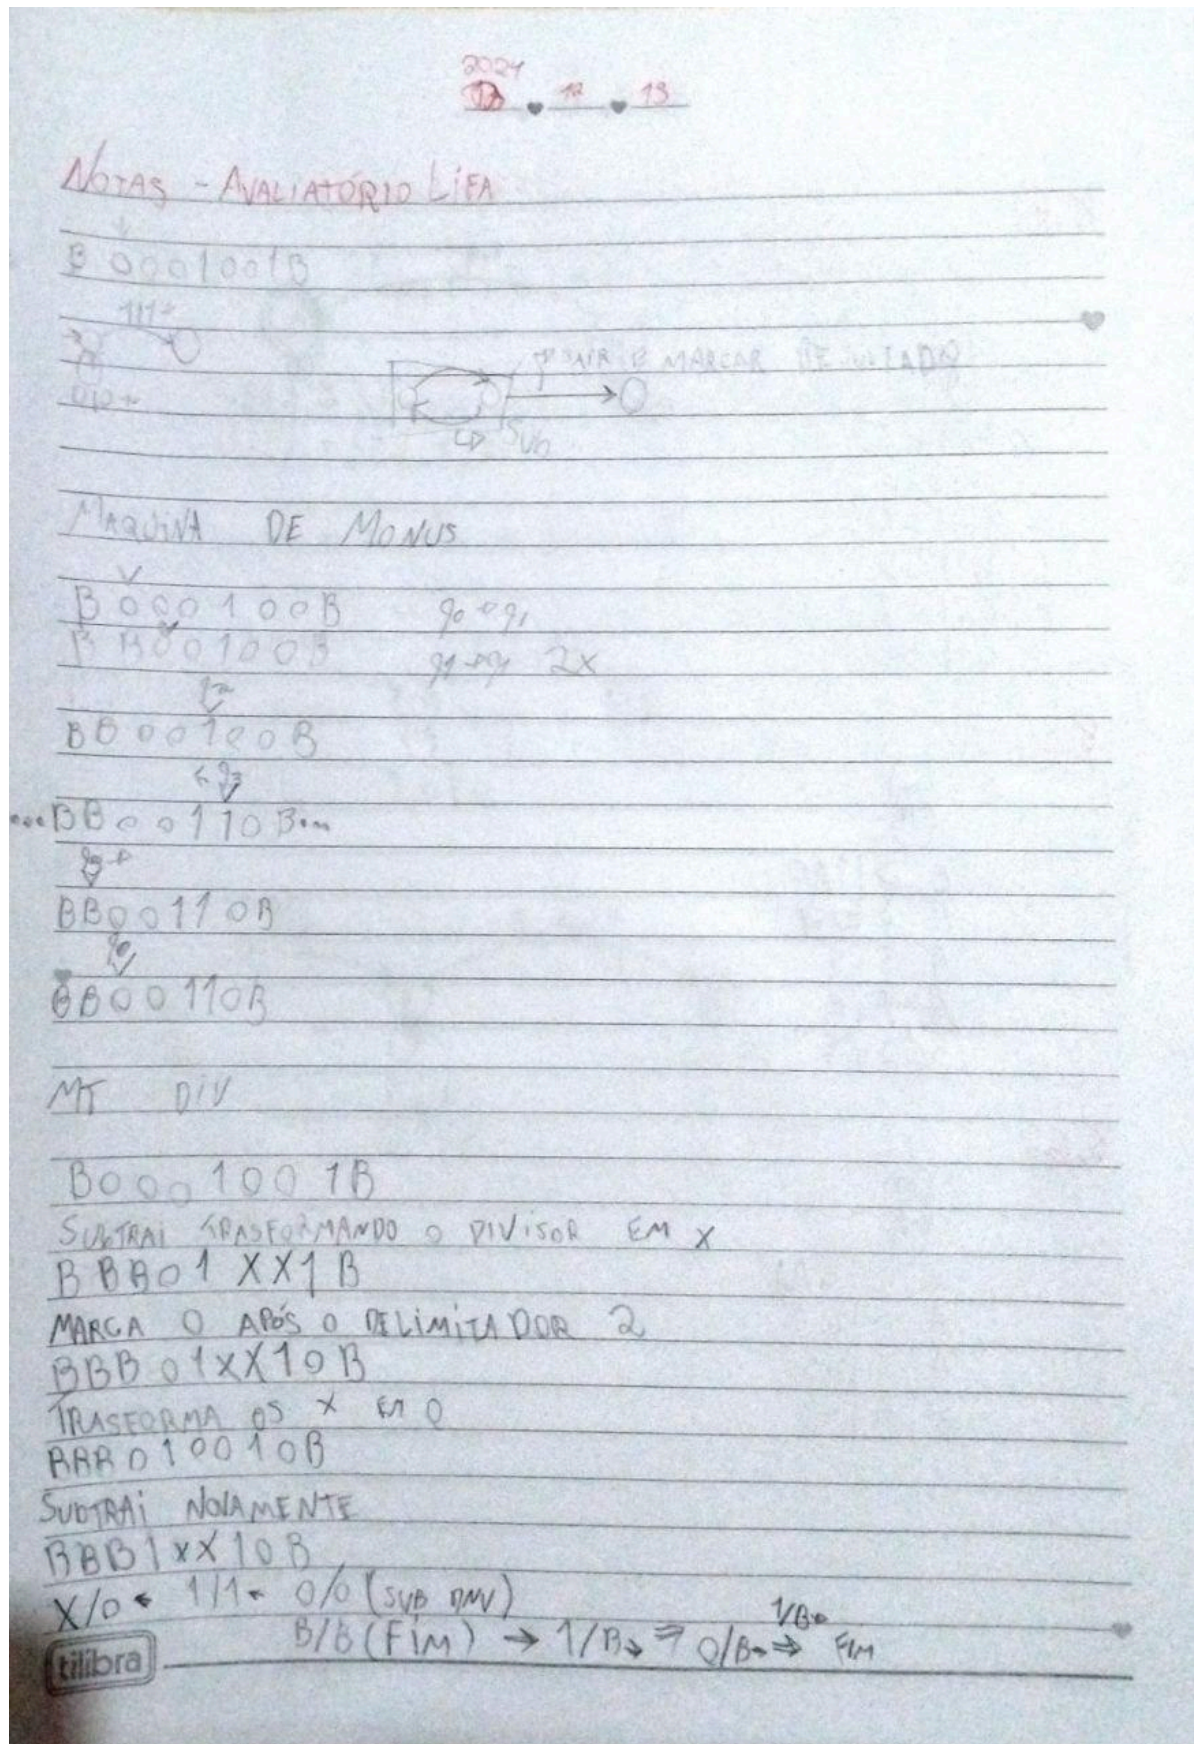 2024
12 13
NOTAS - AVALIATÓRIO LIFA
B 0001001B
SAIR E MARCAR RESULTADO
SUB
MAQUINA DE MONUS
B 000100B q0 → q1
B B00100B q1 → q1 2x
BB00100B
q3
...BB00110B...
q3 →
BB00110B
q0
BB00110B
MT DIV
B0001001B
SUBTRAI TRASFORMANDO O DIVISOR EM X
BBB01XX1B
MARCA 0 APÓS O DELIMITADOR 2
BBB01XX10B
TRASFORMA OS X EM 0
BBB010010B
SUBTRAI NOVAMENTE
BBB1XX10B
X/0 ← 1/1 ← 0/0 (SUB DNV)
1/B →
B/B (FIM) → 1/B → ⇒ 0/B → ⇒ FIM
tilibra